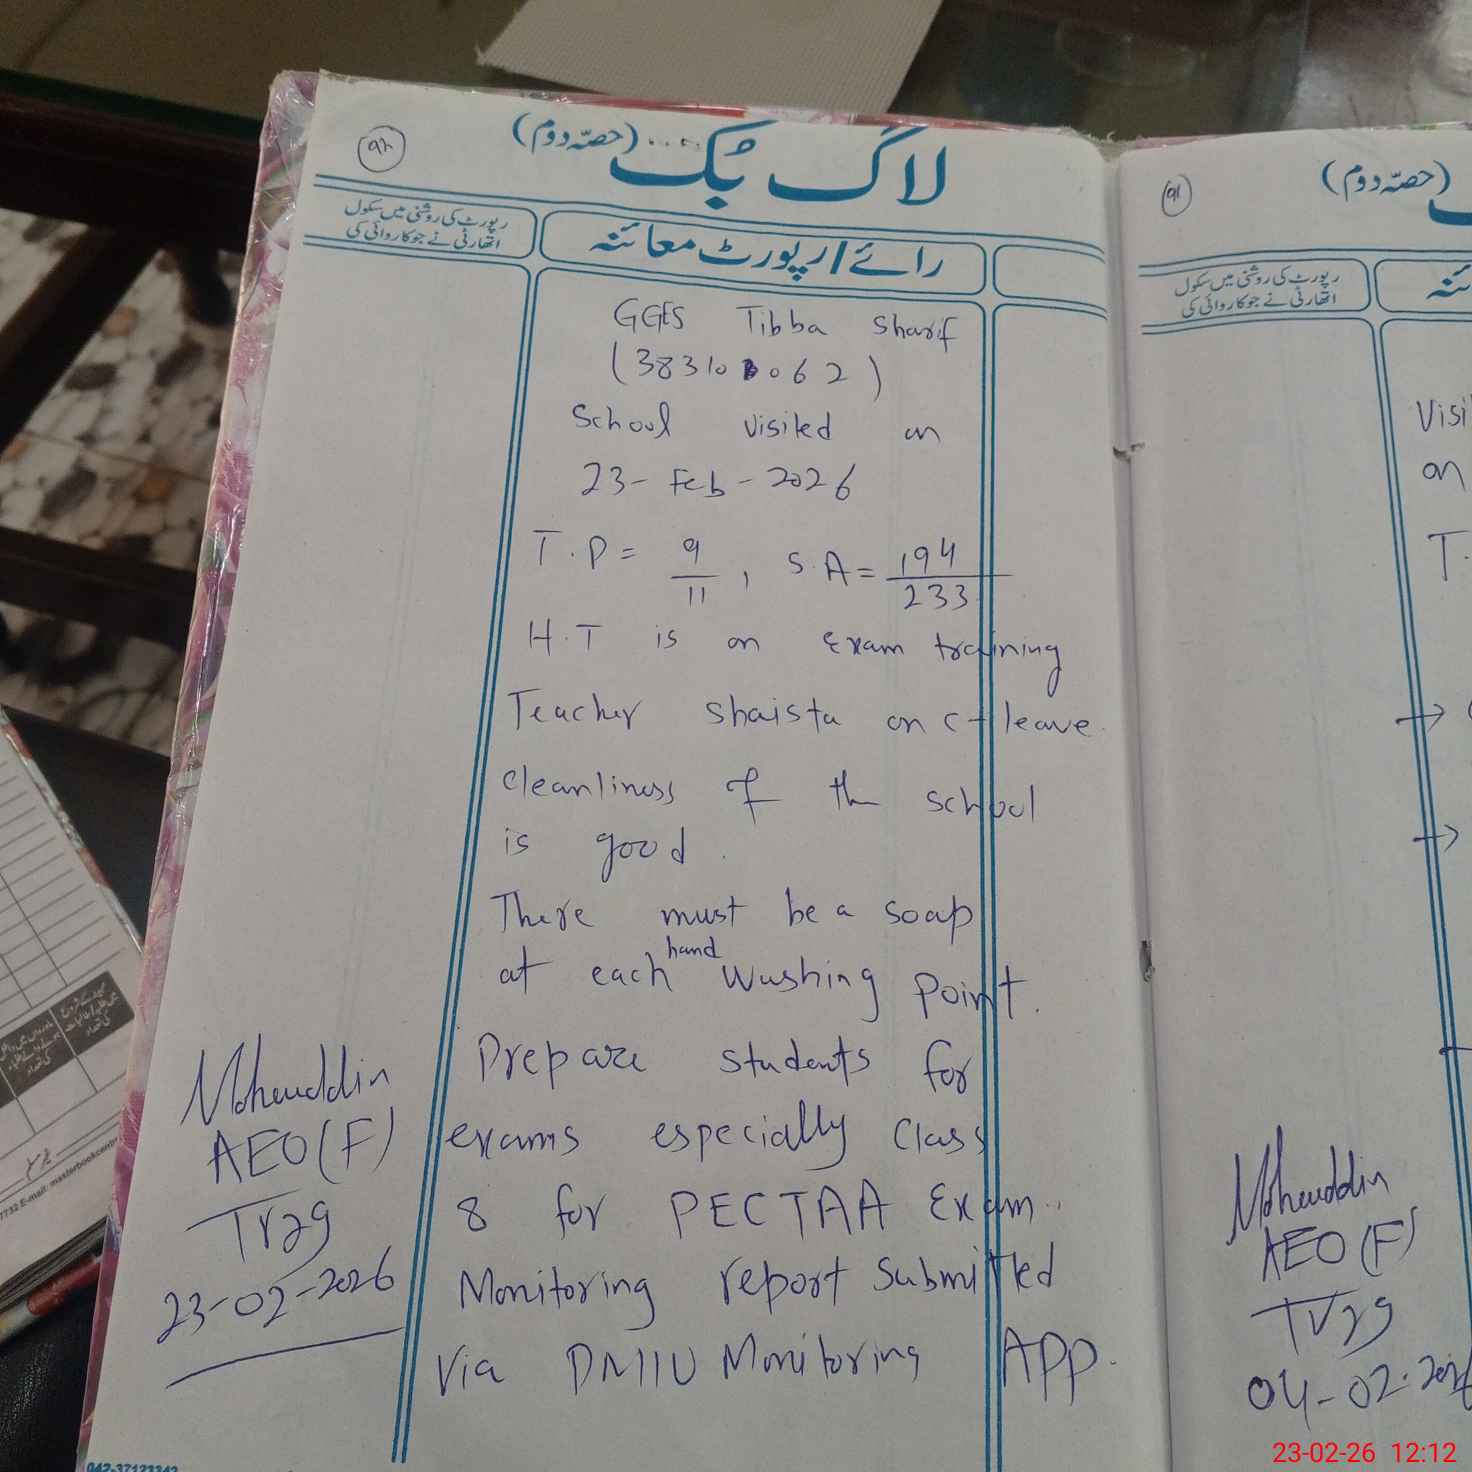 ۹۲
لاگ بک (حصّہ دوم)
رپورٹ کی روشنی میں سکول
اتھارٹی نے جو کاروائی کی
رائے/رپورٹ معائنہ
GGES Tibba Sharif
(38310 062)
School visited on
23- Feb - 2026
T.P = 9/11, S.A = 194/233
H.T is on Exam training
Teacher Shaista on C-leave.
Cleanliness of the school
is good.
There must be a soap
at each hand washing point.
Prepare students for
exams especially Class
8 for PECTAA Exam.
Monitoring report Submitted
Via DMIU Monitoring App.
AEO(F)
23-02-2026
042-37123342
۹۱
(حصّہ دوم)
رپورٹ کی روشنی میں سکول
اتھارٹی نے جو کاروائی کی
Visi
on
T.
AEO(F)
04-02-202
7732 E-mail: masterbookcent
23-02-26 12:12